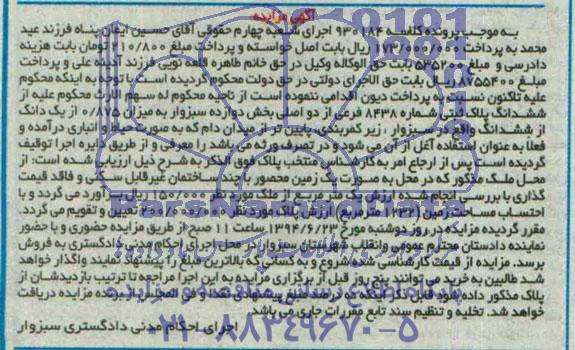 آگهی مزایده
به موجب پرونده کلاسه ۹۳۰۱۸۴ اجرای شعبه چهارم حقوقی آقای حسین ایمان پناه فرزند عید
محمد به پرداخت ۱۷۳/۰۰۰/۰۰۰ ریال بابت اصل خواسته و پرداخت مبلغ ۲۱۰/۸۰۰ تومان بابت هزینه
دادرسی و مبلغ ۵۳۵۲۰۰۰ بابت حق الوکاله وکیل در حق خانم طاهره قلعه نویی فرزند آدینه علی و پرداخت
مبلغ ۸۷۵۵۴۰۰ ریال بابت حق الاجرای دولتی در حق دولت محکوم گردیده است با توجه به اینکه محکوم
علیه تاکنون نسبت به پرداخت دیون اقدامی ننموده است از ناحیه محکوم له سهم الارث محکوم علیه از
ششدانگ پلاک ثبتی شماره ۸۴۳۸ فرعی از دو اصلی بخش دوازده سبزوار به میزان ۰/۸۷۵ از یک دانگ
از ششدانگ واقع در سبزوار ، زیر کمربندی، پایین تر از میدان دام که به صورت حیاط و انباری درآمده و
فعلا به عنوان استفاده آغل از آن می شود و در تصرف ورثه می باشد را معرفی و از طریق دایره اجرا توقیف
گردیده است پس از ارجاع امر به کارشناس منتخب پلاک فوق الذکر به شرح ذیل ارزیابی شده است: از
محل ملک مذکور که در محل به صورت یک زمین محصور با چند ساختمان غیرقابل سکنی و فاقد قیمت
گذاری با بررسی انجام شده ارزش یک متر مربع از ملک مورد نظر ۱۱۵۰/۰۰۰ ریال برآورد می گردد و با
احتساب مساحت زمین (۱۲۳۲ مترمربع) ارزش پلاک مورد نظر ۲۰۰/۰۰۰/۰۰۰ تعیین و تقویم می گردد.
مقرر گردیده مزایده در روز دوشنبه مورخ ۱۳۹۴/۶/۲۳ ساعت ۱۱ صبح از طریق مزایده حضوری و با حضور
نماینده دادستان محترم عمومی وانقلاب شهرستان سبزوار در محل اجرای احکام مدنی دادگستری به فروش
برسد. مزایده از قیمت کارشناسی شده شروع و به کسانی که بالاترین مبلغ را پیشنهاد نمایند واگذار خواهد
شد طالبین به خرید می توانند پنج روز قبل از برگزاری مزایده به این اجرا مراجعه تا ترتیب بازدیدشان از
پلاک مذکور داده شود قابل ذکر اینکه ده درصد مبلغ پیشنهادی نقد و فی المجلس از برنده مزایده دریافت
خواهد شد. تخلیه و تنظیم سند تابع مقررات جاری می باشد.
اجرای احکام مدنی دادگستری سبزوار
۰۲۱-۸۸۳۴۹۶۷۰-۵